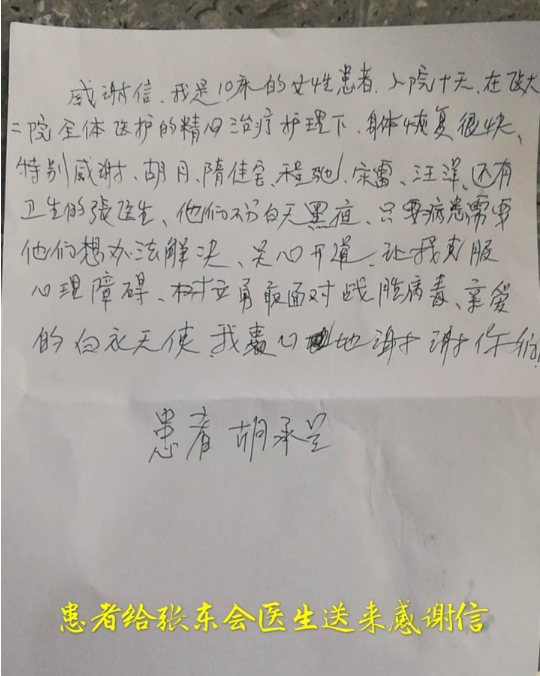 感谢信.我是10床的女性患者.入院十天.在医大
二院全体医护的精心治疗护理下.身体恢复很快、
特别感谢.胡月、隋佳宝、程驰、宋雷、汪洋、还有
卫生的張医生、他们不分白天黑夜、只要病患需要
他们想办法解决、关心开道.让我克服
心理障碍、树立勇敢面对战胜病毒、亲爱
的白衣天使.我衷心地谢谢你们
患者 胡承兰
患者给张东会医生送来感谢信